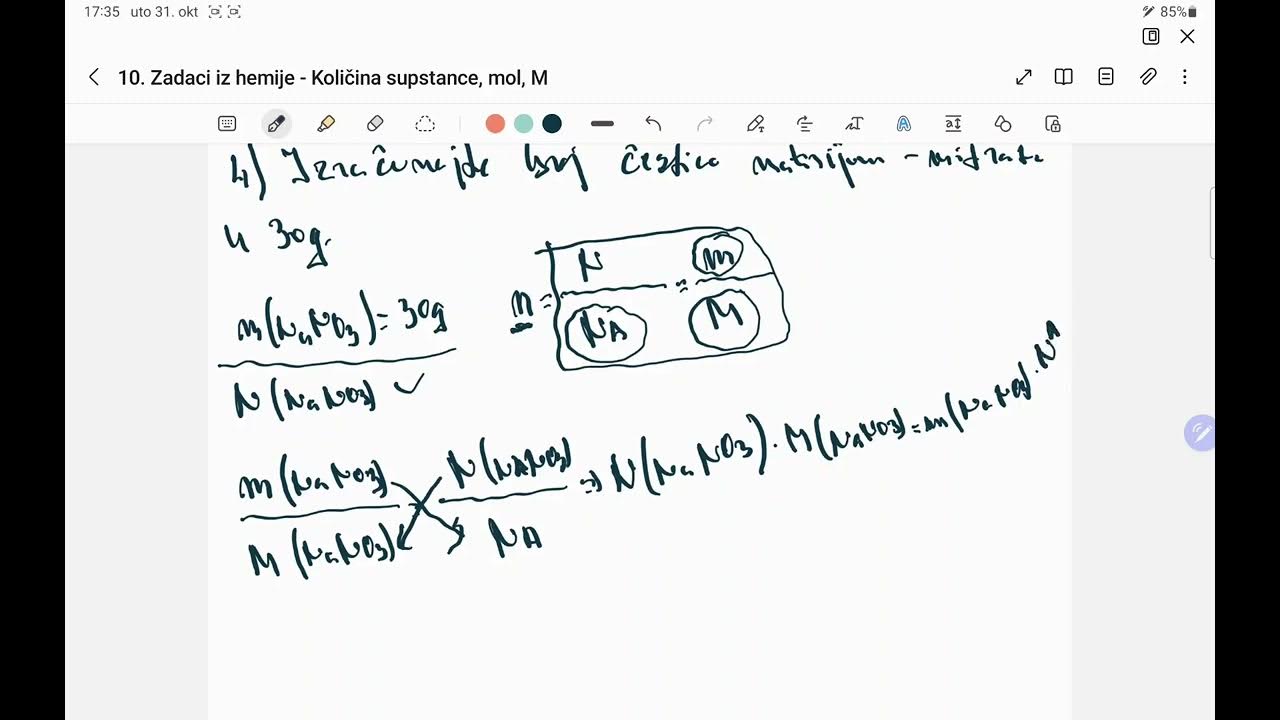 17:35 uto 31. okt 85%
10. Zadaci iz hemije - Količina supstance, mol, M
4) Izračunajte broj čestica natrijum-nitrata
u 30g.
n = N/NA = m/M
m(NaNO3) = 30g
N(NaNO3) ✓
m(NaNO3)/M(NaNO3) = N(NaNO3)/NA => N(NaNO3) · M(NaNO3) = m(NaNO3) · NA